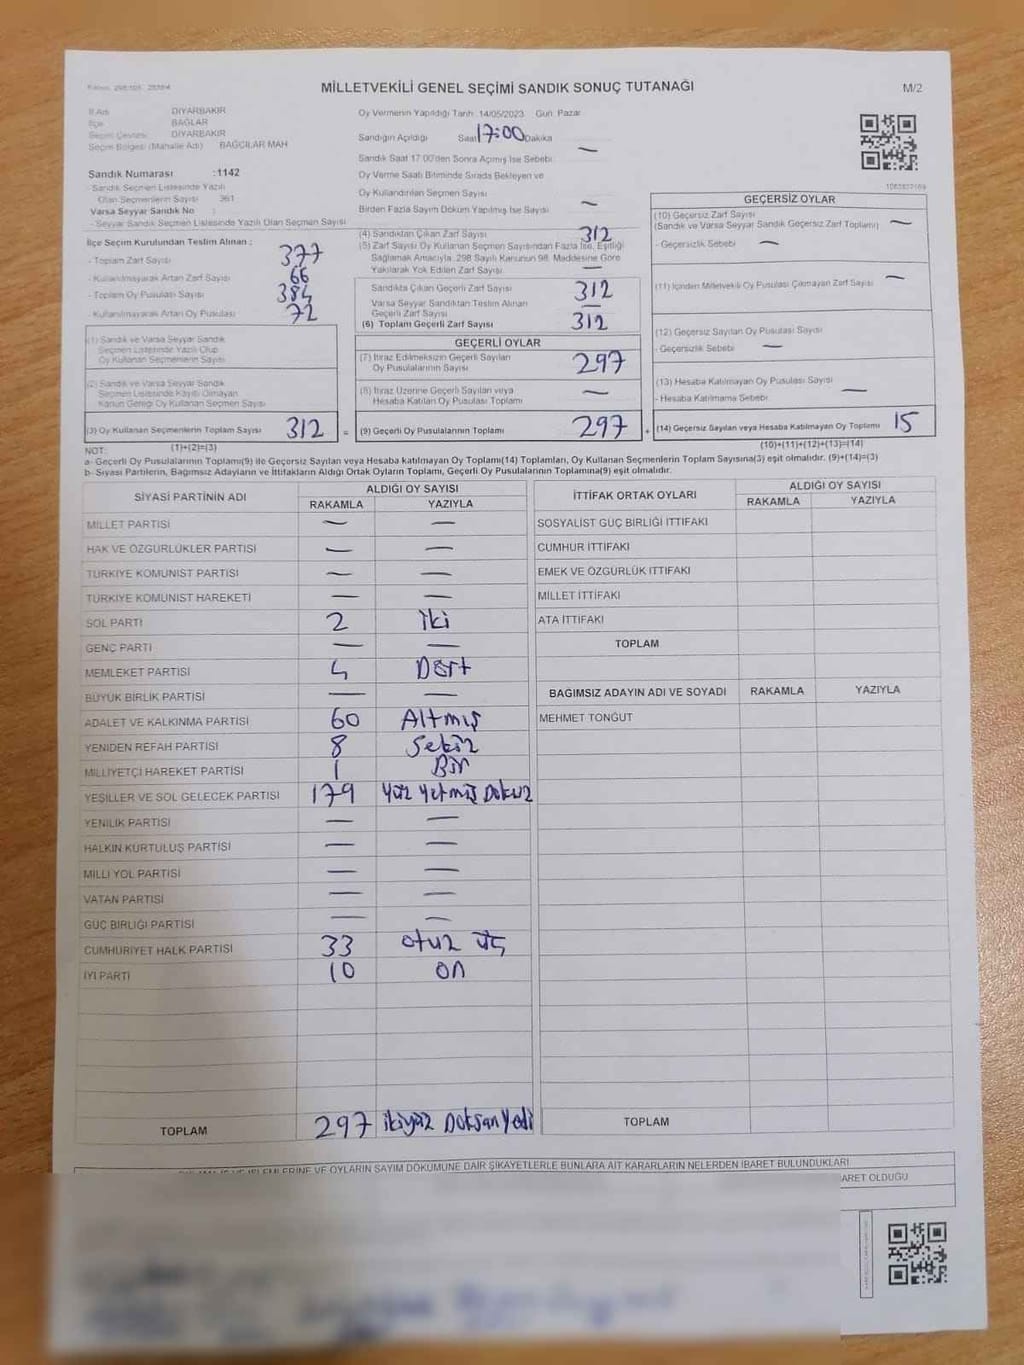 MİLLETVEKİLİ GENEL SEÇİMİ SANDIK SONUÇ TUTANAĞI
M/2
İl Adı DİYARBAKIR
İlçe BAĞLAR
Seçim Çevresi DİYARBAKIR
Seçim Bölgesi (Mahalle Adı) BAĞCILAR MAH
Sandık Numarası :1142
- Sandık Seçmen Listesinde Yazılı
Olan Seçmenlerin Sayısı 361
Varsa Seyyar Sandık No :
- Seyyar Sandık Seçmen Listesinde Yazılı Olan Seçmen Sayısı
İlçe Seçim Kurulundan Teslim Alınan :
- Toplam Zarf Sayısı 377
- Kullanılmayarak Artan Zarf Sayısı 66
- Toplam Oy Pusulası Sayısı 384
- Kullanılmayarak Artan Oy Pusulası 72
(1) Sandık ve Varsa Seyyar Sandık
Seçmen Listesinde Yazılı Olup
Oy Kullanan Seçmenlerin Sayısı
(2) Sandık ve Varsa Seyyar Sandık
Seçmen Listesinde Kayıtlı Olmayan
Kanun Gereği Oy Kullanan Seçmen Sayısı
(3) Oy Kullanan Seçmenlerin Toplam Sayısı 312 =
Oy Vermenin Yapıldığı Tarih :14/05/2023 Gün: Pazar
Sandığın Açıldığı Saat 17:00 Dakika
Sandık Saat 17.00'den Sonra Açılmış İse Sebebi: —
Oy Verme Saati Bitiminde Sırada Bekleyen ve
Oy Kullandırılan Seçmen Sayısı
Birden Fazla Sayım Döküm Yapılmış İse Sayısı —
(4) Sandıktan Çıkan Zarf Sayısı 312
(5) Zarf Sayısı Oy Kullanan Seçmen Sayısından Fazla İse, Eşitliği
Sağlamak Amacıyla, 298 Sayılı Kanunun 98. Maddesine Göre
Yakılarak Yok Edilen Zarf Sayısı —
Sandıkta Çıkan Geçerli Zarf Sayısı 312
Varsa Seyyar Sandıktan Teslim Alınan
Geçerli Zarf Sayısı —
(6) Toplam Geçerli Zarf Sayısı 312
GEÇERLİ OYLAR
(7) İtiraz Edilmeksizin Geçerli Sayılan
Oy Pusulalarının Sayısı 297
(8) İtiraz Üzerine Geçerli Sayılan veya
Hesaba Katılan Oy Pusulası Toplamı —
(9) Geçerli Oy Pusulalarının Toplamı 297 +
1063837169
GEÇERSİZ OYLAR
(10) Geçersiz Zarf Sayısı
(Sandık ve Varsa Seyyar Sandık Geçersiz Zarf Toplamı) —
- Geçersizlik Sebebi —
(11) İçinden Milletvekili Oy Pusulası Çıkmayan Zarf Sayısı —
(12) Geçersiz Sayılan Oy Pusulası Sayısı
- Geçersizlik Sebebi —
(13) Hesaba Katılmayan Oy Pusulası Sayısı
- Hesaba Katılmama Sebebi —
(14) Geçersiz Sayılan veya Hesaba Katılmayan Oy Toplamı 15
NOT: (1)+(2)=(3)
(10)+(11)+(12)+(13)=(14)
a- Geçerli Oy Pusulalarının Toplamı(9) ile Geçersiz Sayılan veya Hesaba katılmayan Oy Toplamı(14) Toplamları, Oy Kullanan Seçmenlerin Toplam Sayısına(3) eşit olmalıdır. (9)+(14)=(3)
b- Siyasi Partilerin, Bağımsız Adayların ve İttifakların Aldığı Ortak Oyların Toplamı, Geçerli Oy Pusulalarının Toplamına(9) eşit olmalıdır.
SİYASİ PARTİNİN ADI
ALDIĞI OY SAYISI
RAKAMLA YAZIYLA
MİLLET PARTİSİ — —
HAK VE ÖZGÜRLÜKLER PARTİSİ — —
TÜRKİYE KOMÜNİST PARTİSİ — —
TÜRKİYE KOMÜNİST HAREKETİ — —
SOL PARTİ 2 iki
GENÇ PARTİ — —
MEMLEKET PARTİSİ 4 Dört
BÜYÜK BİRLİK PARTİSİ — —
ADALET VE KALKINMA PARTİSİ 60 Altmış
YENİDEN REFAH PARTİSİ 8 Sekiz
MİLLİYETÇİ HAREKET PARTİSİ 1 Bir
YEŞİLLER VE SOL GELECEK PARTİSİ 179 Yüz Yetmiş Dokuz
YENİLİK PARTİSİ — —
HALKIN KURTULUŞ PARTİSİ — —
MİLLİ YOL PARTİSİ — —
VATAN PARTİSİ — —
GÜÇ BİRLİĞİ PARTİSİ — —
CUMHURİYET HALK PARTİSİ 33 otuz üç
İYİ PARTİ 10 on
TOPLAM 297 ikiyüz Doksan Yedi
İTTİFAK ORTAK OYLARI
ALDIĞI OY SAYISI
RAKAMLA YAZIYLA
SOSYALİST GÜÇ BİRLİĞİ İTTİFAKI
CUMHUR İTTİFAKI
EMEK VE ÖZGÜRLÜK İTTİFAKI
MİLLET İTTİFAKI
ATA İTTİFAKI
TOPLAM
BAĞIMSIZ ADAYIN ADI VE SOYADI RAKAMLA YAZIYLA
MEHMET TONĞUT
TOPLAM
İŞLEMLERİNE VE OYLARIN SAYIM DÖKÜMÜNE DAİR ŞİKAYETLERLE BUNLARA AİT KARARLARIN NELERDEN İBARET BULUNDUKLARI
ARET OLDUĞU